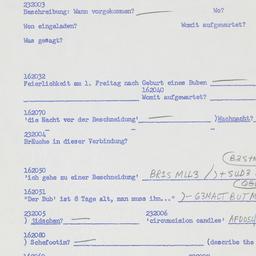 232003
Beschreibung: Wann vorgekommen? Wo?
Wen eingeladen? Womit aufgewartet?
Was gesagt?
162032
Feierlichkeit am 1. Freitag nach Geburt eines Buben
162040
Womit aufgewartet?
162070
'die Nacht vor der Beschneidung' )Wachnacht?
232004
Bräuche in dieser Verbindung?
162050
'ich gehe zu einer Beschneidung'
162051
"Der Bub' ist 8 Tage alt, man muss ihn..."
232005 232006
) jüdschen? 'circumcision candles'
162080
) Schefostim? (describe the